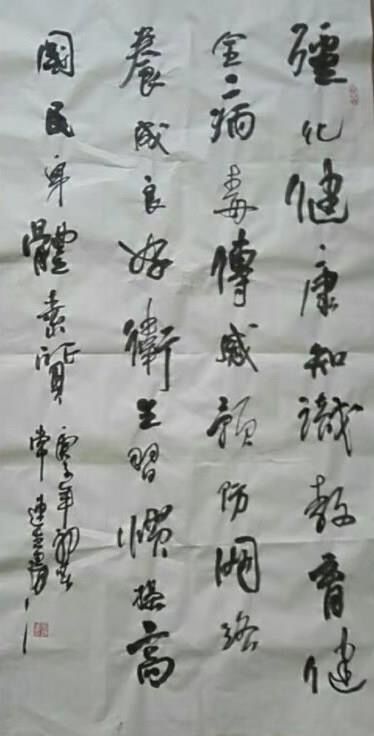 彊化健康知識教育健
全二病毒傳感預防网络
養成良好衛生習慣提高
國民身體素質
庚子年初春
常連